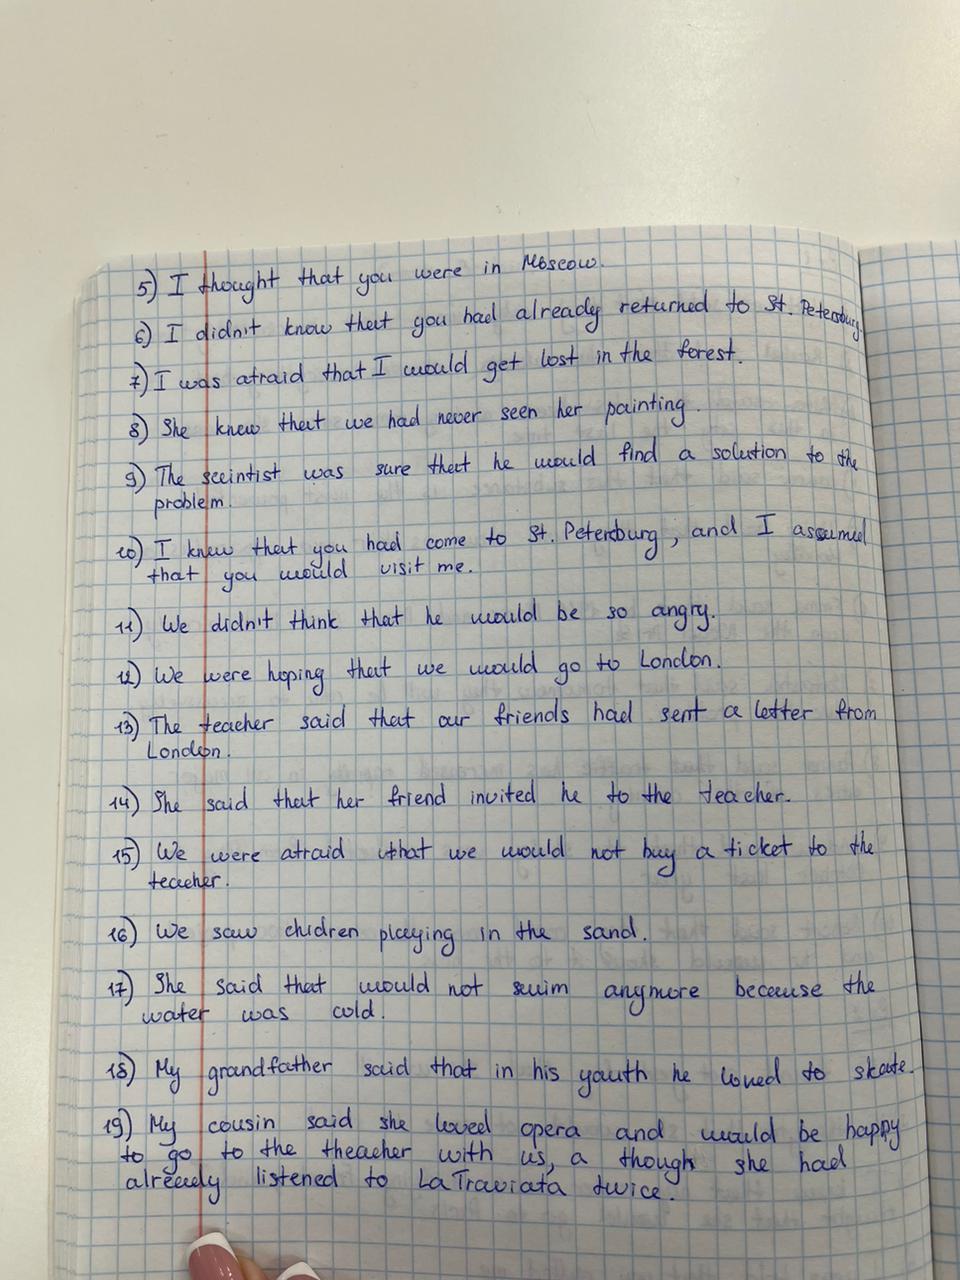 5) I thought that you were in Moscow.
6) I didn't know that you had already returned to St. Petersburg.
7) I was afraid that I would get lost in the forest.
8) She knew that we had never seen her painting.
9) The sceintist was sure that he would find a solution to the
problem.
10) I knew that you had come to St. Petersburg, and I assumed
that you would visit me.
11) We didn't think that he would be so angry.
12) We were hoping that we would go to London.
13) The teacher said that our friends had sent a letter from
London.
14) She said that her friend invited he to the teacher.
15) We were afraid that we would not buy a ticket to the
teacher.
16) We saw chidren playing in the sand.
17) She said that would not swim anymore because the
water was cold.
18) My grandfather said that in his youth he loved to skate.
19) My cousin said she loved opera and would be happy
to go to the theacher with us, a though she had
already listened to La Traviata twice.